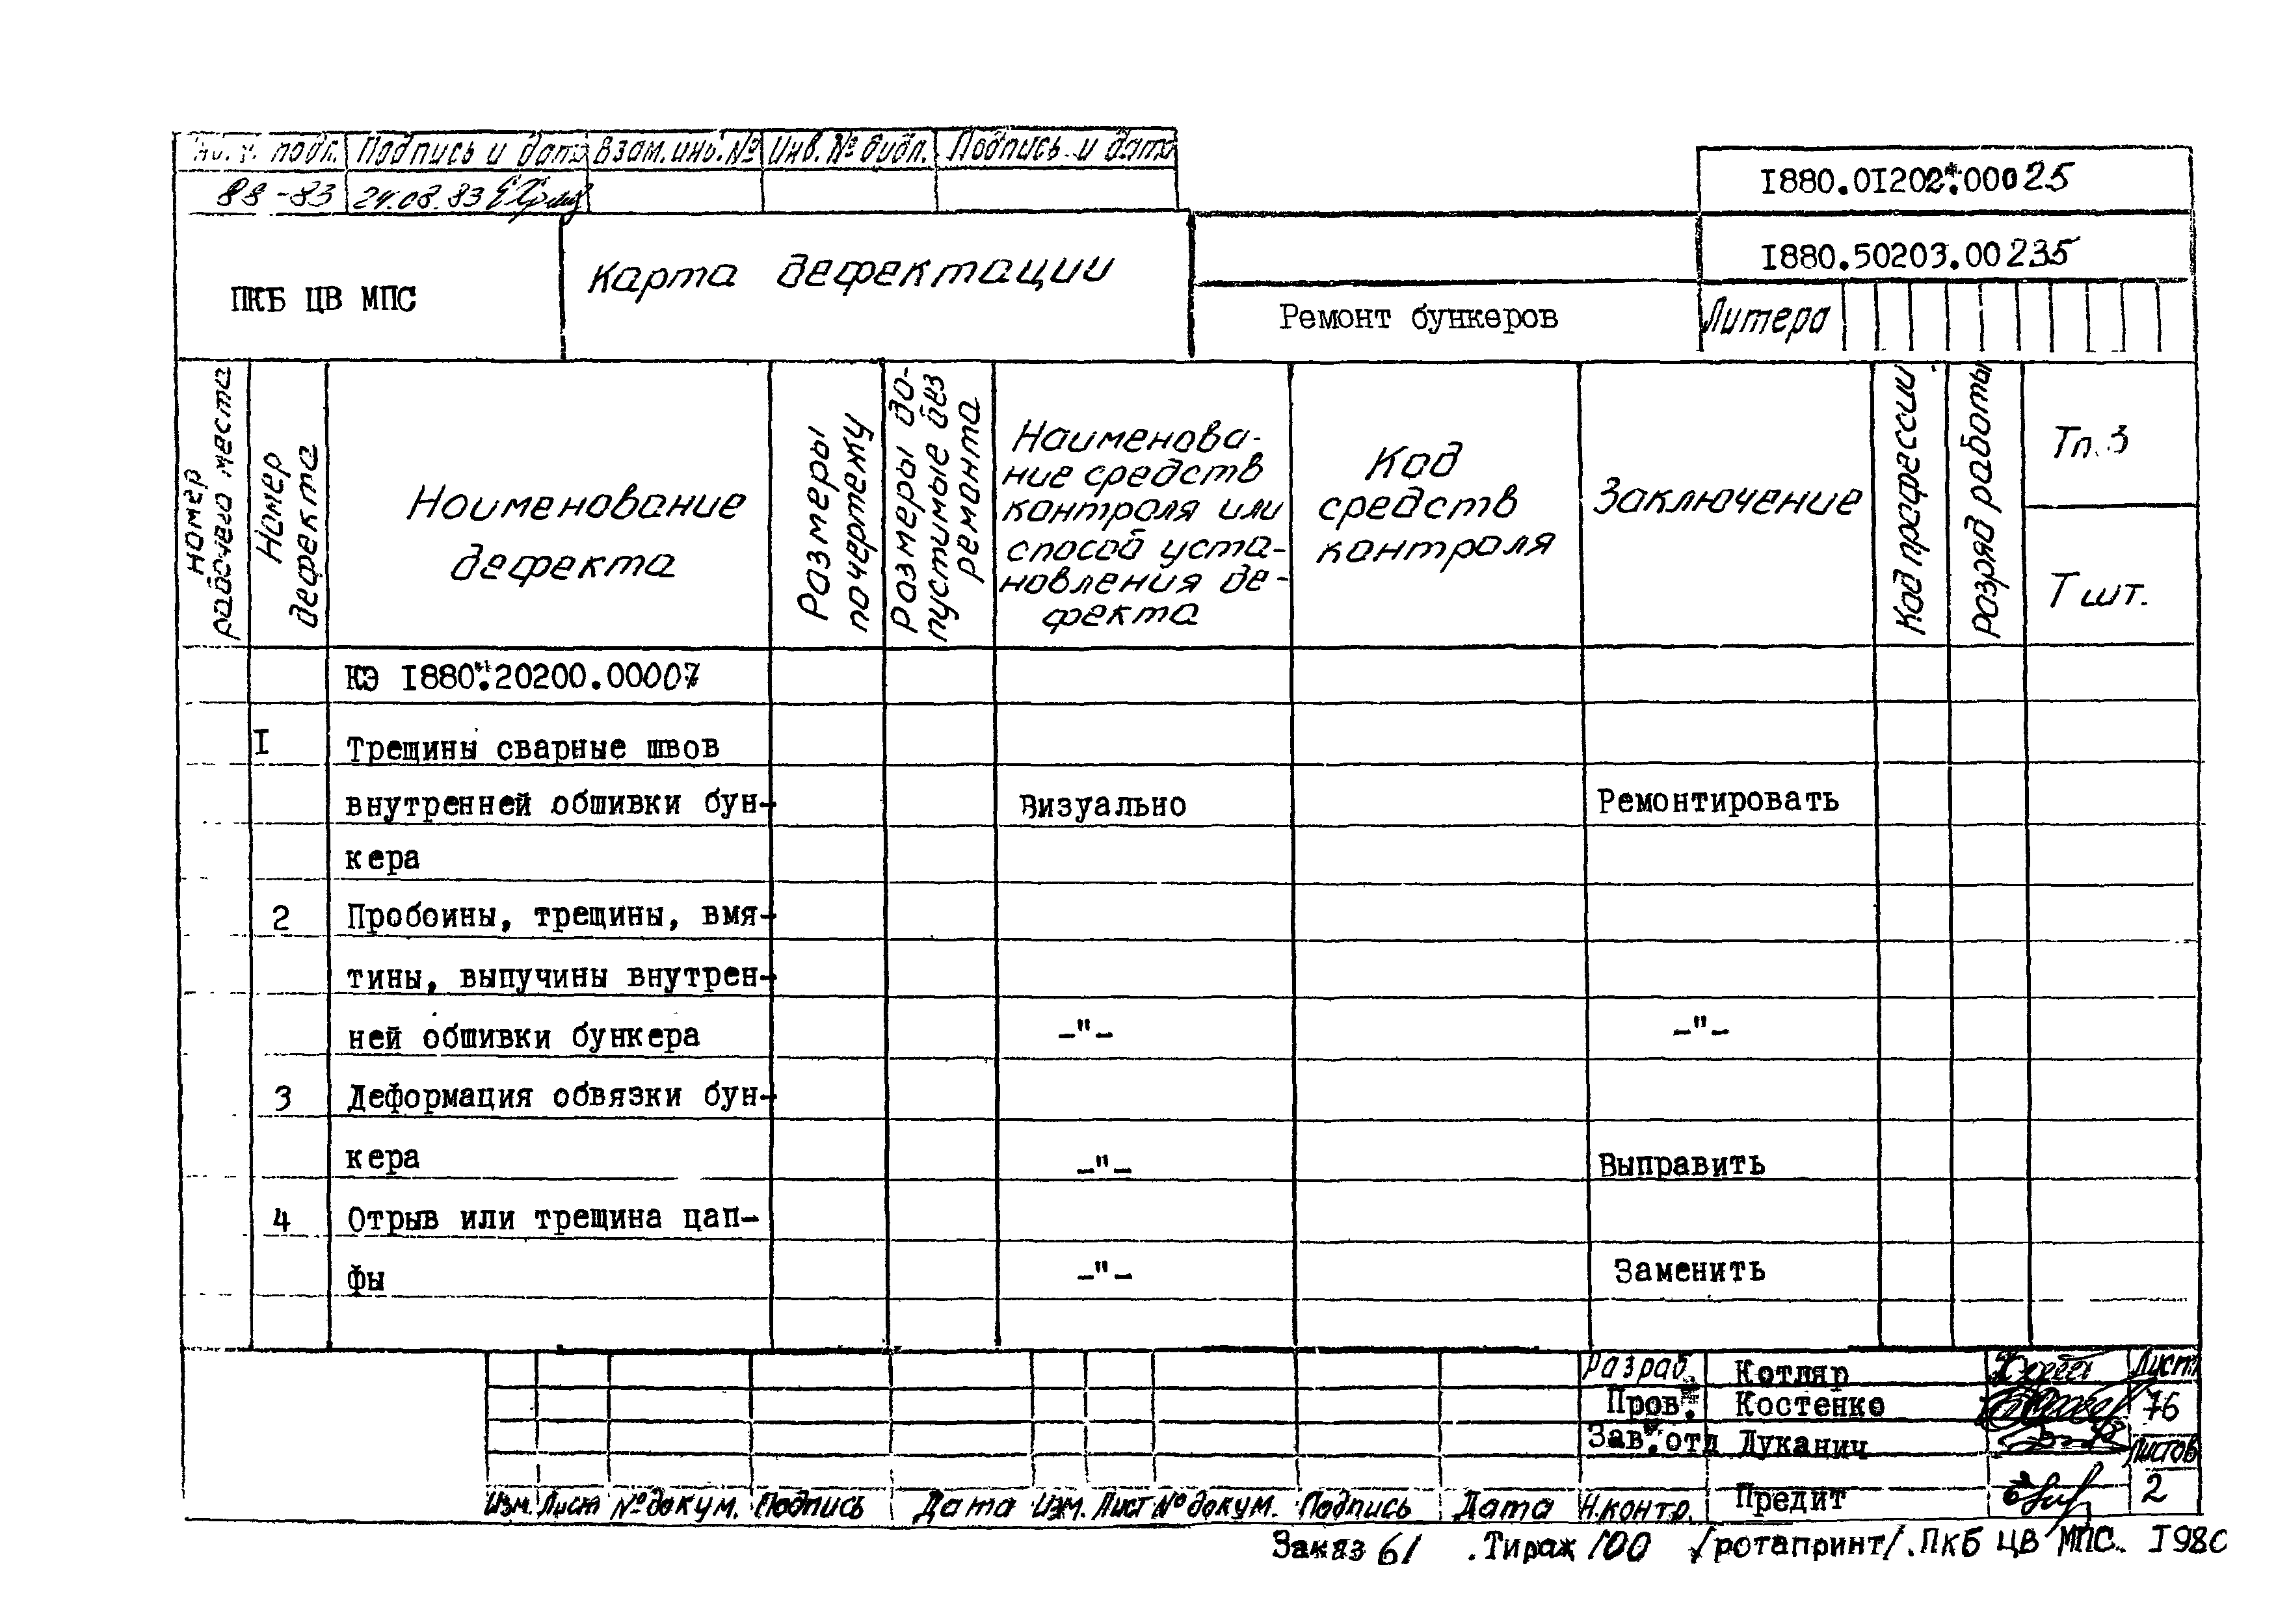 подл. Подпись и дата Взам.инв.№ Инв.№ дубл. Подпись и дата
88-83 24.08.83
1880.01202.00025
1880.50203.00235
ПКБ ЦВ МПС
Карта дефектации
Ремонт бункеров
Литера
Номер
рабочего места
Номер
дефекта
Наименование
дефекта
Размеры
по чертежу
Размеры до-
пустимые без
ремонта
Наименова-
ние средств
контроля или
способ уста-
новления де-
фекта
Код
средств
контроля
Заключение
Код профессии
Разряд работы
Тп.з
Т шт.
КЭ 1880.20200.00007
I Трещины сварные швов
внутренней обшивки бун- Визуально Ремонтировать
кера
2 Пробоины, трещины, вмя-
тины, выпучины внутрен-
ней обшивки бункера -"- -"-
3 Деформация обвязки бун-
кера -"- Выправить
4 Отрыв или трещина цап-
фы -"- Заменить
Разраб. Котляр Лист
Пров. Костенко 76
Зав.отд Луканич Листов
Изм. Лист №докум. Подпись Дата Изм. Лист №докум. Подпись Дата Н.контр. Предит 2
Заказ 61 .Тираж 100 /ротапринт/.ПКБ ЦВ МПС. I98